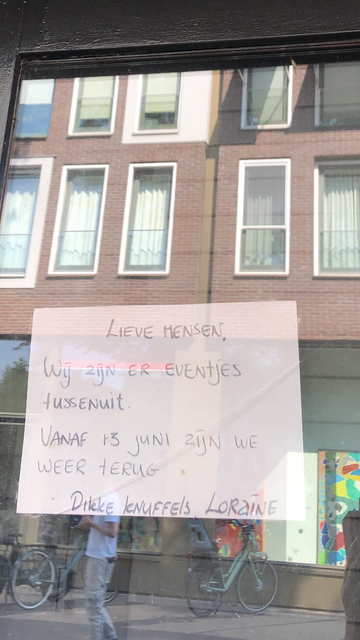 LIEVE MENSEN,
Wij zijn er eventjes
tussenuit.
VANAF 13 juni zijn we
weer terug
Dikke knuffels, Loraine